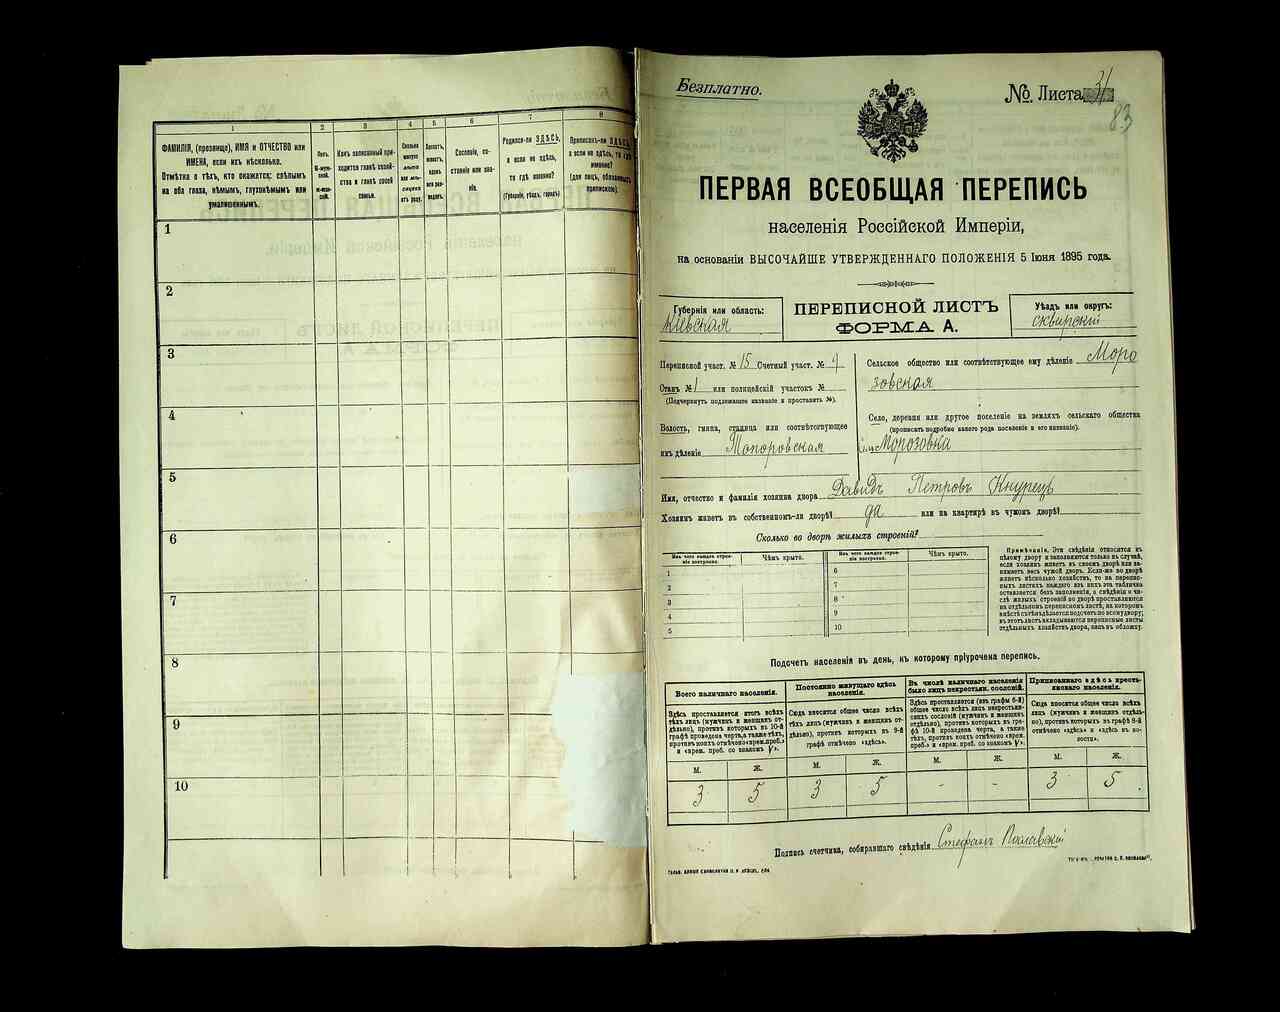 1
2
3
4
5
6
7
8
ФАМИЛІЯ, (прозвище), ИМЯ и ОТЧЕСТВО или
ИМЕНА, если ихъ нѣсколько.
Отмѣтка о тѣхъ, кто окажется: слѣпымъ
на оба глаза, нѣмымъ, глухонѣмымъ или
умалишеннымъ.
Полъ.
Какъ записанный при-
ходится главѣ хозяй-
ства и главѣ своей
семьи.
Сколько
минуло
лѣтъ
или мѣ-
сяцевъ
отъ роду.
Сословіе, со-
стояніе или зва-
ніе.
Родился-ли ЗДѢСЬ,
а если не здѣсь,
то гдѣ именно?
(Губернія, уѣздъ, городъ)
Приписанъ-ли ЗДѢСЬ,
а если не здѣсь, то гдѣ
именно?
(для лицъ, обязанныхъ
припискою).
1
2
3
4
5
6
7
8
9
10
Безплатно.
№ Листа 31
83
ПЕРВАЯ ВСЕОБЩАЯ ПЕРЕПИСЬ
населенія Россійской Имперіи,
на основаніи ВЫСОЧАЙШЕ УТВЕРЖДЕННАГО ПОЛОЖЕНІЯ 5 Іюня 1895 года.
Губернія или область:
Кіевская
ПЕРЕПИСНОЙ ЛИСТЪ
ФОРМА А.
Уѣздъ или округъ:
сквирскій
Переписной участ. № 15 Счетный участ. №
Станъ № 1 или полицейскій участокъ №
(Подчеркнуть подлежащее названіе и проставить №).
Волость, гмина, станица или соотвѣтствующее
имъ дѣленіе Топоровская
Сельское общество или соотвѣтствующее ему дѣленіе Моро
зовская
Село, деревня или другое поселеніе на земляхъ сельскаго общества
(прописать подробно какого рода поселеніе и его названіе).
Морозовка
Имя, отчество и фамилія хозяина двора Давидъ Петровъ Кнурецъ
Хозяинъ живетъ въ собственномъ-ли дворѣ? да или на квартирѣ въ чужомъ дворѣ?
Сколько во дворѣ жилыхъ строеній?
Изъ чего каждое строе-
ніе построено.
Чѣмъ крыто.
Изъ чего каждое строе-
ніе построено.
Чѣмъ крыто.
1
2
3
4
5
6
7
8
9
10
Примѣчаніе. Эти свѣдѣнія относятся къ
цѣлому двору и заполняются только въ случаѣ,
если хозяинъ живетъ въ своемъ дворѣ или за-
нимаетъ весь чужой дворъ. Если-же во дворѣ
живетъ нѣсколько хозяйствъ, то на перепис-
ныхъ листахъ каждаго изъ нихъ эта табличка
оставляется безъ заполненія, а свѣдѣнія о чи-
слѣ жилыхъ строеній во дворѣ проставляются
на отдѣльномъ переписномъ листѣ, на которомъ
вмѣстѣ съ тѣмъ дѣлается подсчетъ по всему двору;
въ этотъ листъ вкладываются переписные листы
отдѣльныхъ хозяйствъ двора, какъ въ обложку.
Подсчетъ населенія въ день, къ которому пріурочена перепись.
Всего наличнаго населенія.
Постоянно живущаго здѣсь
населенія.
Въ числѣ наличнаго населенія
было лицъ некрестьянск. сословій.
Приписаннаго здѣсь кресть-
янскаго населенія.
Здѣсь проставляется итогъ всѣхъ
тѣхъ лицъ (мужчинъ и женщинъ от-
дѣльно), противъ которыхъ въ 10-й
графѣ проведена черта, а также тѣхъ,
противъ коихъ отмѣчено «врем. преб.»
и «врем. преб. со знакомъ V».
Сюда вносится общее число всѣхъ
тѣхъ лицъ (мужчинъ и женщинъ от-
дѣльно), противъ которыхъ въ 9-й
графѣ отмѣчено «здѣсь».
Здѣсь проставляется (изъ графы 6-й)
общее число всѣхъ лицъ некрестьян-
скихъ сословій (мужчинъ и женщинъ
отдѣльно), противъ которыхъ въ гра-
фѣ 10-й проведена черта, а также
тѣхъ, противъ коихъ отмѣчено «врем.
преб.» и «врем. преб. со знакомъ V».
Сюда вносится общее число всѣхъ
лицъ (мужчинъ и женщинъ отдѣль-
но), противъ которыхъ въ графѣ 8-й
отмѣчено «здѣсь» и «здѣсь въ во-
лости».
М. Ж. М. Ж. М. Ж. М. Ж.
3 5 3 5 - - 3 5
Подпись счетчика, собиравшаго свѣдѣнія Стефанъ